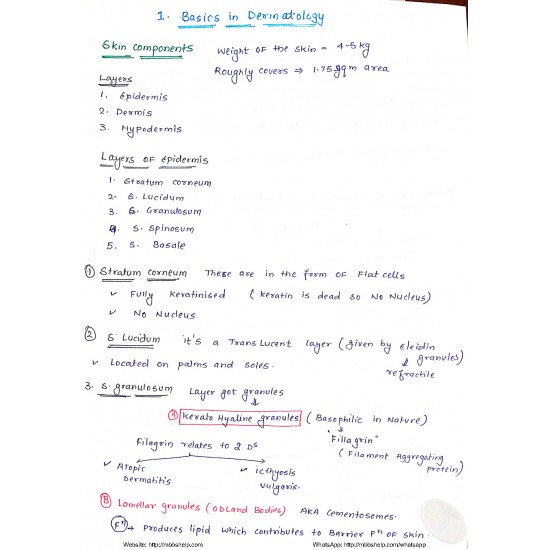 1. Basics in Dermatology
Skin components
Weight of the skin = 4-5kg
Roughly covers ⇒ 1.75 sqm area
Layers
1. Epidermis
2. Dermis
3. Hypodermis
Layers of epidermis
1. Stratum corneum
2. S. Lucidum
3. S. Granulosum
4. S. Spinosum
5. S. Basale
① Stratum corneum These are in the form of Flat cells
✓ Fully keratinised (keratin is dead so No Nucleus)
✓ No Nucleus
② S Lucidum it's a TransLucent layer (given by eleidin granules)
↓ refractile
✓ Located on palms and soles.
3. S. granulosum Layer got granules
↓
Ⓐ Kerato Hyaline granules (Basophilic in Nature)
"Fillagrin"
(Filament Aggregating protein)
Filagrin relates to 2 Ds
✓ Atopic Dermatitis
✓ icthyosis vulgaris.
Ⓑ Lamellar granules (ODLand Bodies) AKA Cementosomes.
Fⁿ → Produces lipid which contributes to Barrier Fⁿ of skin.
Website: http://mbbshelp.com WhatsApp: http://mbbshelp.com/whatsapp